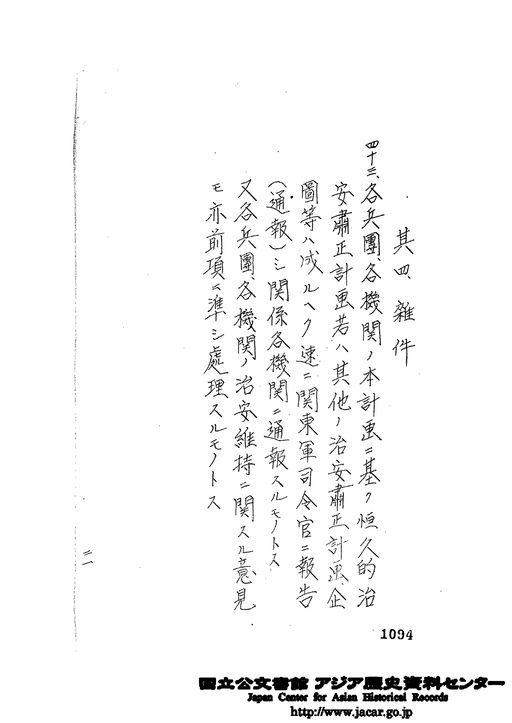 其四、雜件
四十三、各兵團、各機関ノ本計画ニ基ク恒久的治
安肅正計画若ハ其他ノ治安肅正計画、企
圖等ハ成ルヘク速ニ関東軍司令官ニ報告
(通報)シ関係各機関ニ通報スルモノトス
又各兵團各機関ノ治安維持ニ関スル意見
モ亦前項ニ準シ處理スルモノトス
二一
1094
国立公文書館 アジア歴史資料センター
Japan Center for Asian Historical Records
http://www.jacar.go.jp